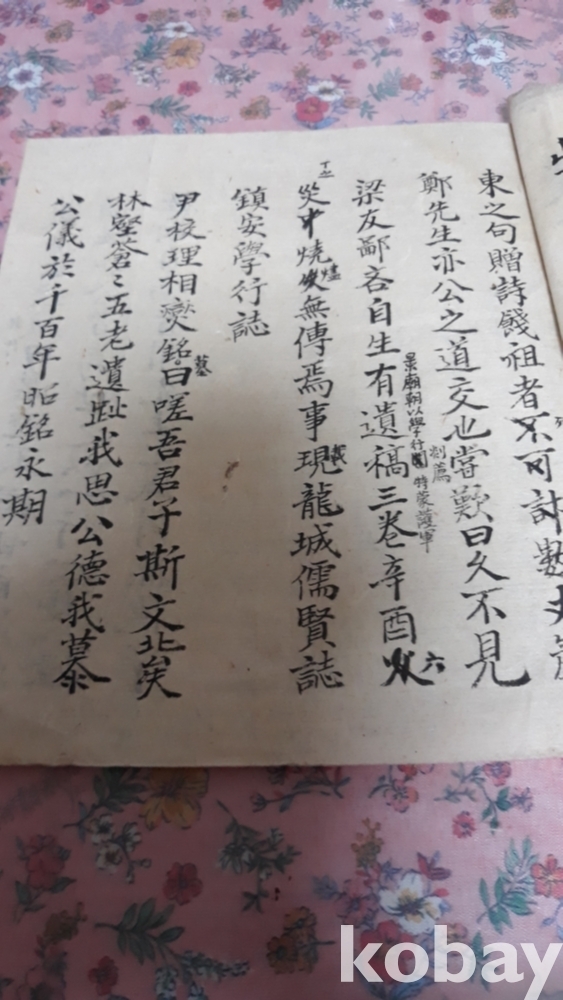 東之句贈詩餞祖者不可計數
鄭先生亦公之道交也嘗歎曰久不見
梁友鄙吝自生有遺稿三卷辛酉火六
景廟朝以學行 特蒙護軍
制薦
丁
災中燒燼無傳焉事現龍城儒賢誌
鎮安學行誌
尹校理相燮銘墓曰嗟吾君子斯文北矣
林壑蒼〻五老遺趾我思公德我慕
公儀於千百年昭銘永期
kobay